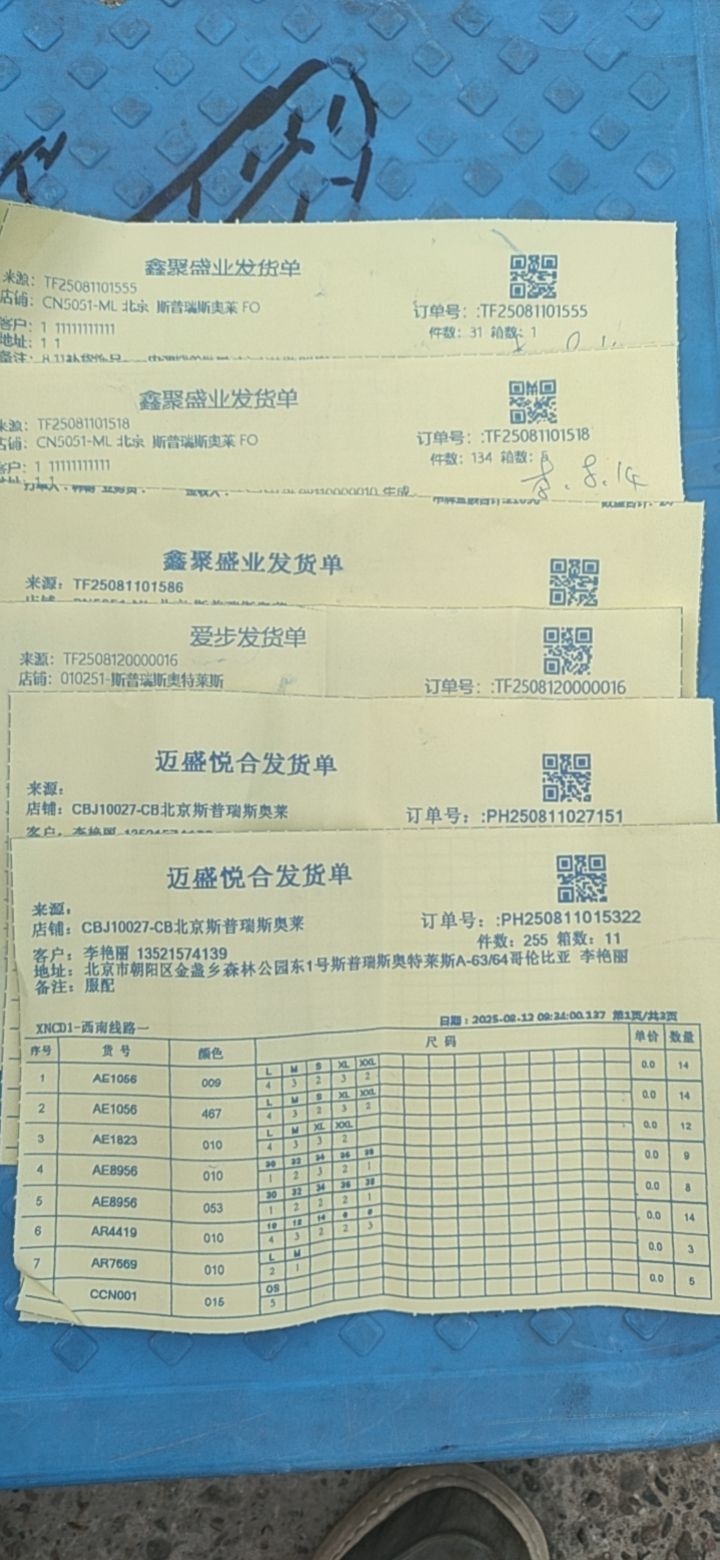 鑫聚盛业发货单
来源: TF25081101555
店铺: CN5051-ML 北京 斯普瑞斯奥莱 FO
订单号: :TF25081101555
客户: 1 11111111111
件数: 31 箱数: 1
地址: 1 1
鑫聚盛业发货单
来源: TF25081101518
店铺: CN5051-ML 北京 斯普瑞斯奥莱 FO
订单号: :TF25081101518
客户: 1 11111111111
件数: 134 箱数: 5
8.14
鑫聚盛业发货单
来源: TF25081101586
爱步发货单
来源: TF2508120000016
店铺: 010251-斯普瑞斯奥特莱斯
订单号: :TF2508120000016
迈盛悦合发货单
来源:
店铺: CBJ10027-CB北京斯普瑞斯奥莱
订单号: :PH250811027151
迈盛悦合发货单
来源:
店铺: CBJ10027-CB北京斯普瑞斯奥莱
订单号: :PH250811015322
件数: 255 箱数: 11
客户: 李艳丽 13521574139
地址: 北京市朝阳区金盏乡森林公园东1号斯普瑞斯奥特莱斯A-63/64哥伦比亚 李艳丽
备注: 服配
XNCD1-西南线路一
日期: 2025-08-12 09:34:00.137 第1页/共3页
序号 货号 颜色 尺码 单价 数量
L M S XL XXL
1 AE1056 009 4 3 2 3 2 0.0 14
L M S XL XXL
2 AE1056 467 4 3 2 3 2 0.0 14
L M XL XXL
3 AE1823 010 4 3 3 2 0.0 12
30 32 34 36 38
4 AE8956 010 1 2 3 2 1 0.0 9
30 32 34 36 38
5 AE8956 053 1 2 2 2 1 0.0 8
10 12 14 6 8
6 AR4419 010 4 3 2 2 3 0.0 14
L M
7 AR7669 010 2 1 0.0 3
OS
CCN001 015 5 0.0 5